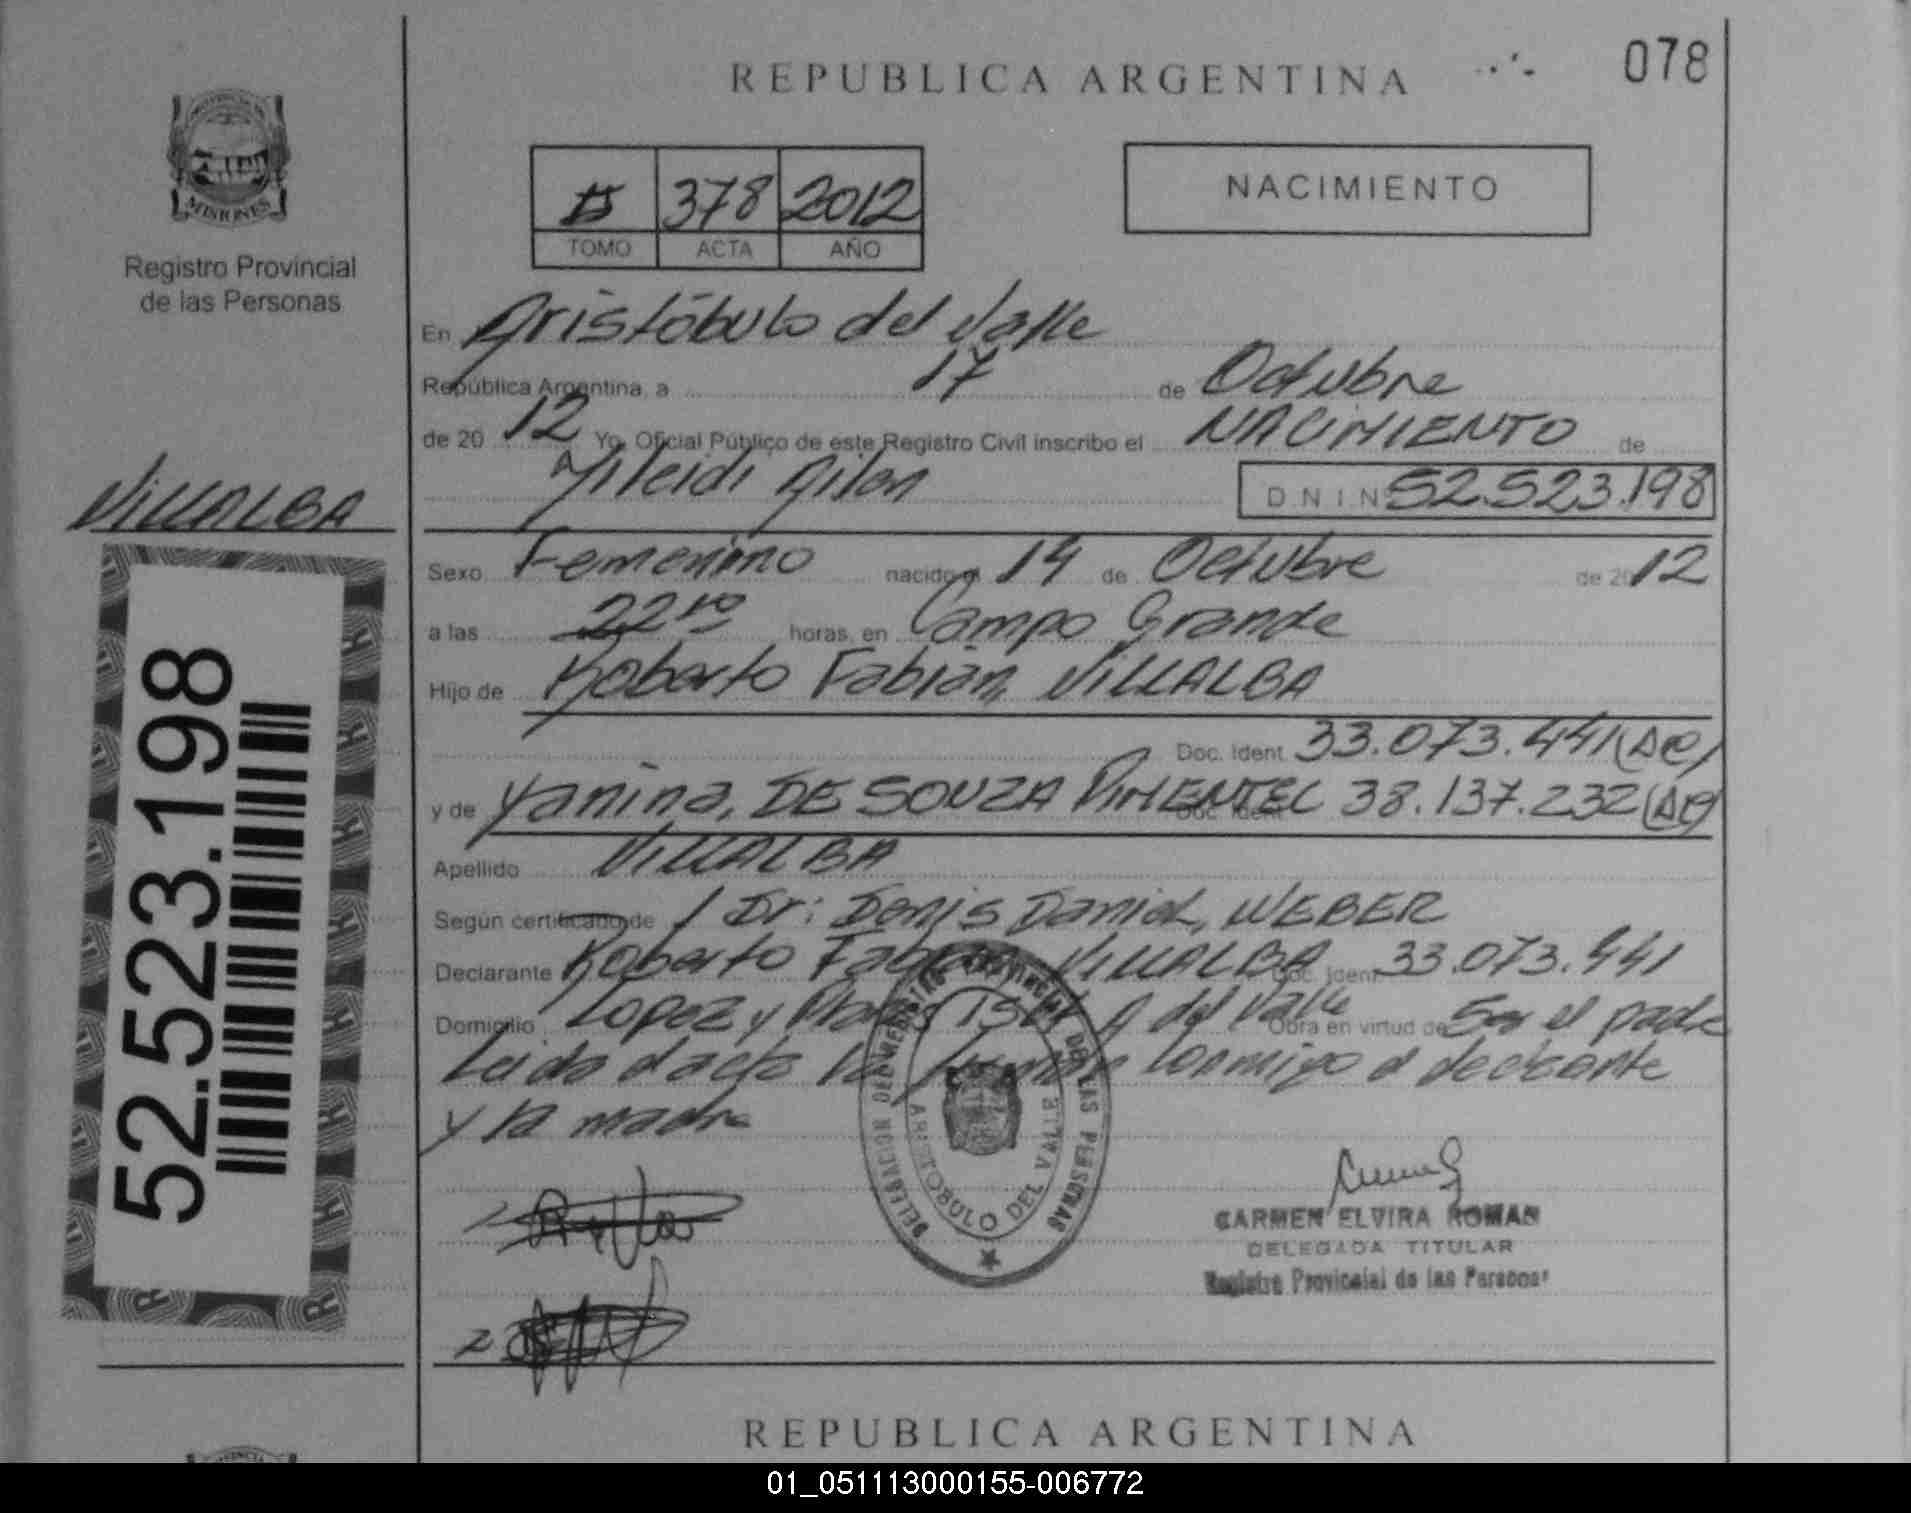 REPUBLICA ARGENTINA
078
MISIONES
Registro Provincial
de las Personas
378 2012
TOMO ACTA AÑO
NACIMIENTO
En Aristóbulo del Valle
República Argentina, a 17 de Octubre
de 20 12 Yo, Oficial Público de este Registro Civil inscribo el NACIMIENTO de
Yileidi Ailen
D N I N 52.523.198
VILLALBA
Sexo Femenino nacido el 14 de Octubre de 2012
a las 22 10 horas, en Campo Grande
Hijo de Roberto Fabián, VILLALBA
Doc. Ident 33.073.441 (AR)
y de Yanina, DE SOUZA PIMENTEL Doc. Ident 38.137.232 (AR)
Apellido VILLALBA
Según certificado de / Dr: Denis Daniel, WEBER
Declarante Roberto Fabián VILLALBA Doc. Ident 33.073.441
Domicilio Lopez y A del Valle Obra en virtud de Ser el padre
Leida el acta la firman conmigo el declarante
y la madre
52.523.198
DELEGACION DEL REGISTRO PROVINCIAL DE LAS PERSONAS
ARISTOBULO DEL VALLE
CARMEN ELVIRA ROMAN
DELEGADA TITULAR
Registro Provincial de las Personas
REPUBLICA ARGENTINA
01_051113000155-006772